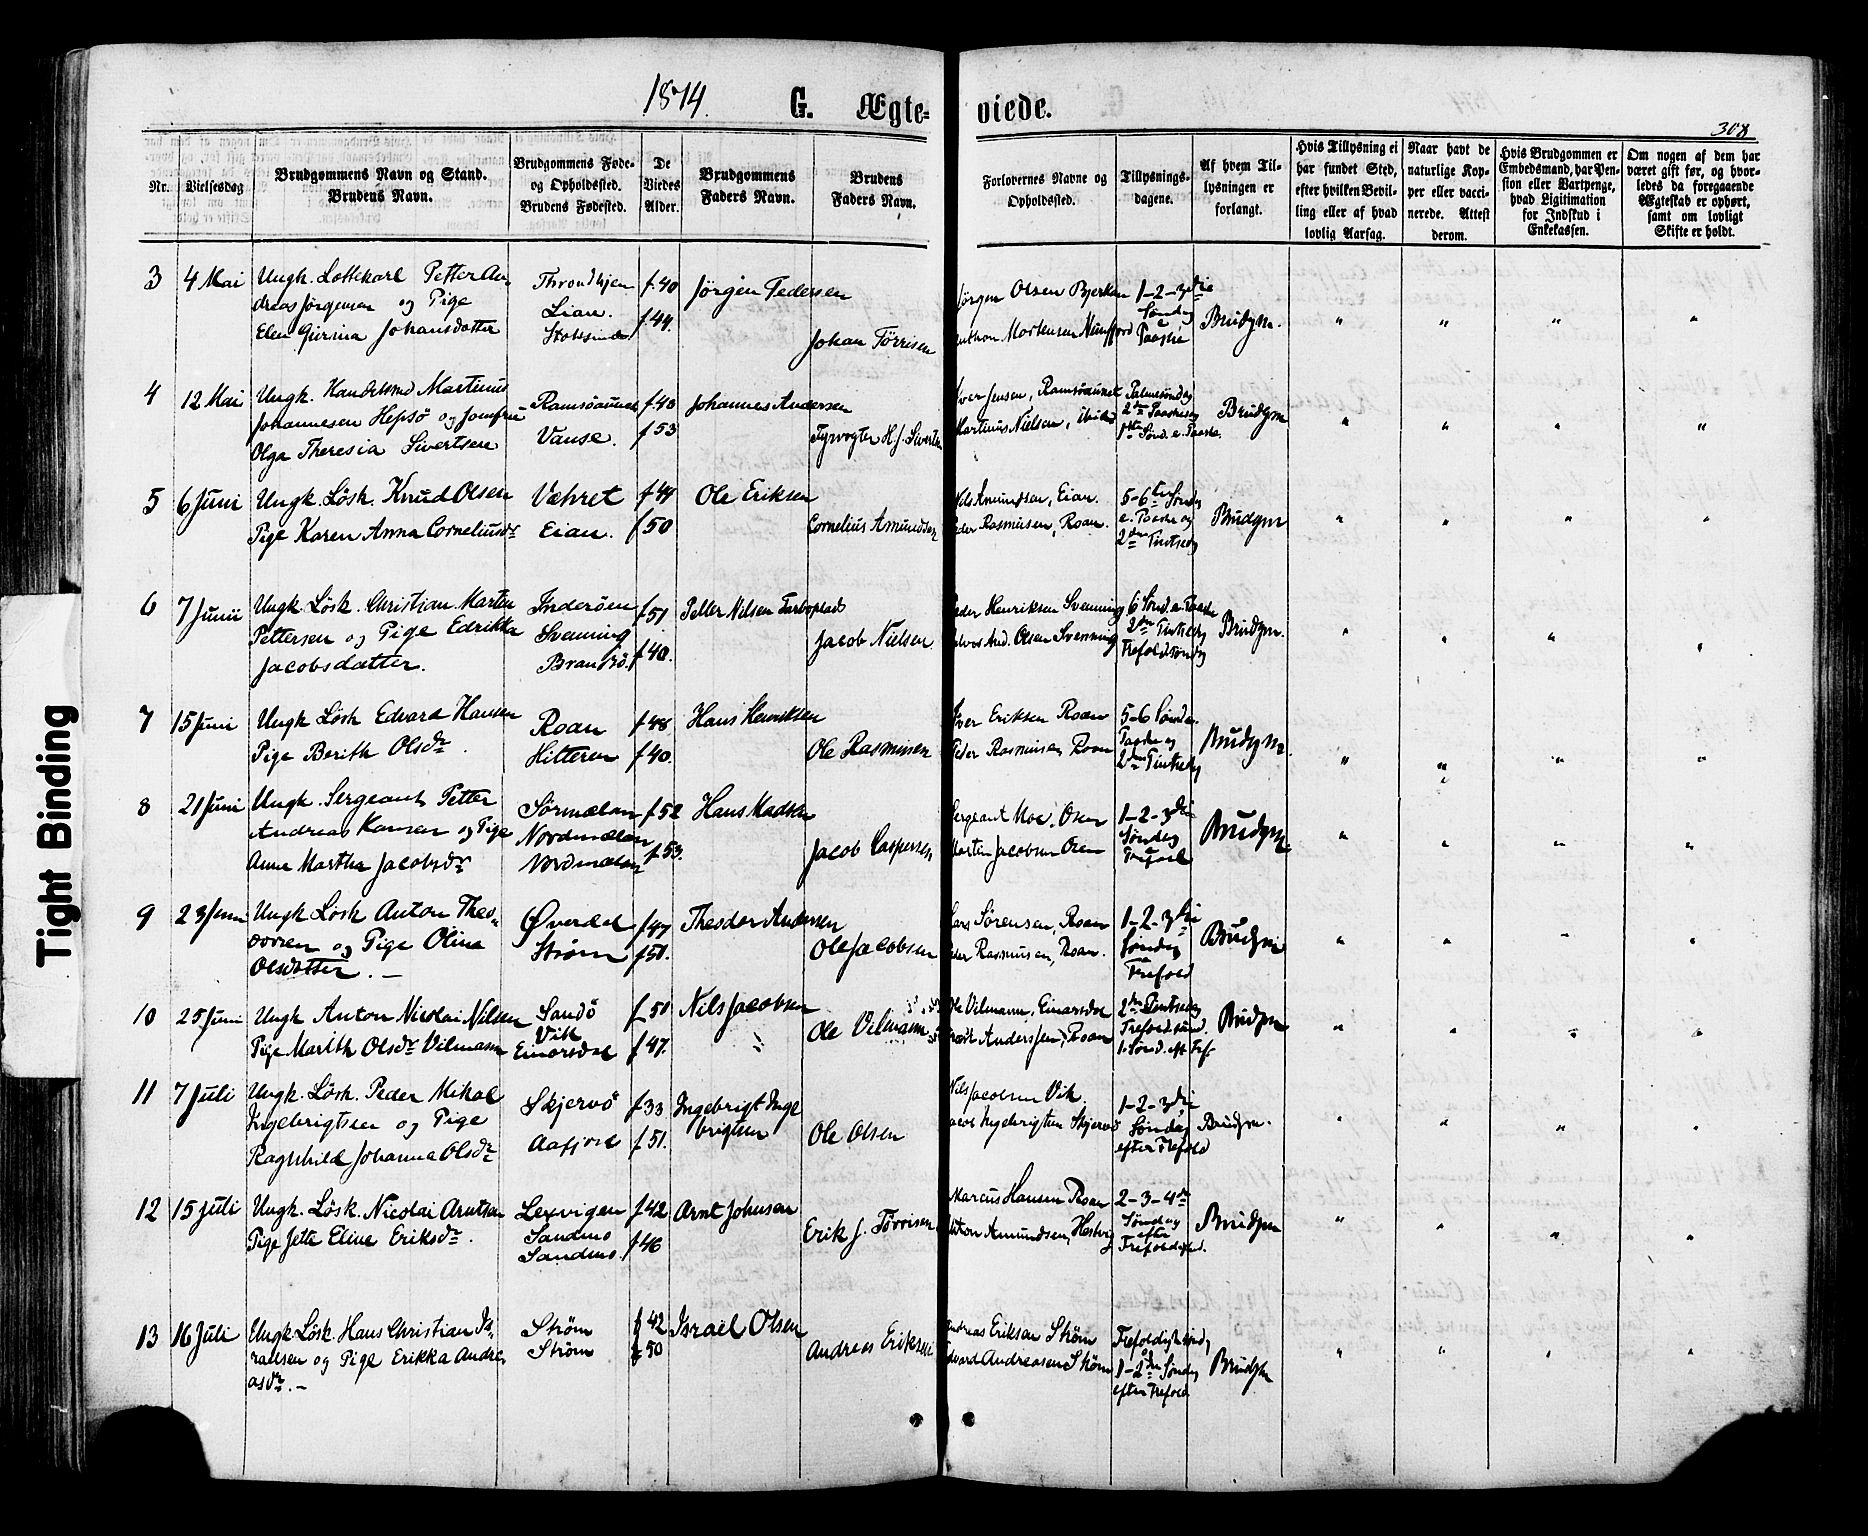 1874. G. Ægte- viede.
308
Nr.
Vielsesdag
Brudgommens Navn og Stand.
Brudens Navn.
Brudgommens Føde-
og Opholdssted.
Brudens Fødested.
De
Viedes
Alder.
Brudgommens
Faders Navn.
Brudens
Faders Navn.
Forlovernes Navne og
Opholdssted.
Tillysnings-
dagene.
Af hvem Til-
lysningen er
forlangt.
Hvis Tillysning ei
har fundet Sted,
efter hvilken Bevil-
ling eller af hvad
lovlig Aarsag.
Naar havt de
naturlige Kop-
per eller vacci-
nerede. Attest
derom.
Hvis Brudgommen er
Embedsmand, har Pen-
sion eller Vartpenge,
hvad Ligitimation
for Indskud i
Enkekassen.
Om nogen af dem har
været gift før, og hvor-
ledes da foregaaende
Ægteskab er ophørt,
samt om lovligt
Skifte er holdt.
3 4 Mai Ungk. Petter An-
dreas Jørgensen og Pige
Johansdatter
Throndhjem
Lian.
f. 40
f 44.
Jørgen Pedersen
Johan Tørrisen
Jørgen Olsen
Mortensen
1-2-3die
Søndag
e
Paaske
Brudgm.
4 12 Mai Ungk. Martinus
Johannesen Hepsø og Jomfru
Olga Theresia Sivertsen
Ramsøaunet
Vanse.
f 40
f 53
Johannes Andersen
Fyrvogter H. J. Sivertsen
Iver Jensen, Ramsøaunet
Martinus Nielsen, ibid
Palmesøndag
2den Paaskedag
1ste Sønd. e. Paaske.
Brudgm
5 6 Juni Ungk. Løsk. Knud Olsen
Pige Karen Anna Corneliusdr
Eian.
f 49
f 50
Ole Eriksen
Cornelius Amundsen
Nils Amundsen, Eian.
Peder Rasmusen, Roan.
5-6te Søndag
e. Paaske og
2den Pintsedag
Brudgm
6 7 Junii Ungk. Løsk. Christian Martin
Pettersen og Pige Edrikka
Jacobsdatter.
Inderøen
Svenning
Brandsø.
f 51
f 40.
Petter Nilsen
Jacob Nielsen.
Peder Henriksen Svenning
Olsen Svenning
6 Sønd. e. Paaske
2den Pintsedag
Trefoldsøndag
Brudgm.
7 15 Juni Ungk Løsk Edvard Hansen
Pige Berith Olsdr.
Roan
Hitteren
f 48
f 40.
Hans Henriksen
Ole Rasmusen
Iver Eriksen Roan
Peder Rasmusen, Roan
5-6 Sønd e.
Paaske og
2den Pintsedag
Brudgm.
8 21 Juni Ungk. Sergeant Petter
Andreas Hansen og Pige
Anne Martha Jacobsdr
Sørmælan
Nordmælan
Nordmælan
f 52
f 53.
Hans Madsen
Jacob Caspersen
Sergeant Moe, Osen
Morten Jacobsen Osen
1-2-3die
Søndag
e
Trefold
Brudgm.
9 23 Juni Ungk Løsk Anton Theo-
dorsen og Pige Olina
Olsdatter. —
Øverdal
Strøm
f 47
f 51.
Theodor Andersen
Ole Jacobsen
Lars Sørensen, Roan
Peder Rasmusen, Roan.
1-2-3die
Søndag
e
Trefold
Brudgm
10 25 Juni Ungk Anton Nicolai Nilsen
Pige Marith Olsdr Vilmann
Sandø
Vik
Einarsdal
f 50
f 47.
Nils Jacobsen
Ole Vilmann
Ole Vilmann, Einarsdal
Andersen, Roan
2den Pintsedag
Trefoldsønd.
1. Sønd. eft Tref.
Brudgm
11 7 Juli Ungk. Løsk. Peder Mikal
Ingebrigtsen og Pige
Ragnhild Johanna Olsdr
Skjervø
Aafjord
f 33
f 51.
Ingebrigt Inge
brigtsen
Ole Olsen
Nils Jacobsen Vik.
Jacob Ingebrigtsen Skjervø
1-2-3die
Søndag
efter Trefold
Brudgm.
12 15 Juli Ungk. Løsk. Nicolai Arntsen
Pige Jette Eline Eriksdr.
Lexvigen
Sandmo
Sandmo.
f 42
f 46
Arnt Johnsen
Erik J. Tørrisen
Marcus Hansen Roan
Anton Amundsen, Hestvig
2-3-4de
Søndag
efter
Trefoldighed.
Brudgm
13 16 Juli Ungk. Løsk. Hans Christian Is-
raelsen og Pige Erikka Andre-
asdr. —
Strøm
Strøm
f 42
f 50
Israel Olsen
Andreas Eriksen
Andreas Eriksen Strøm
Edvard Andreasen Strøm
Trefoldighedsøndag
1-2den Søndag
efter Trefold
Brudgm
Tight Binding